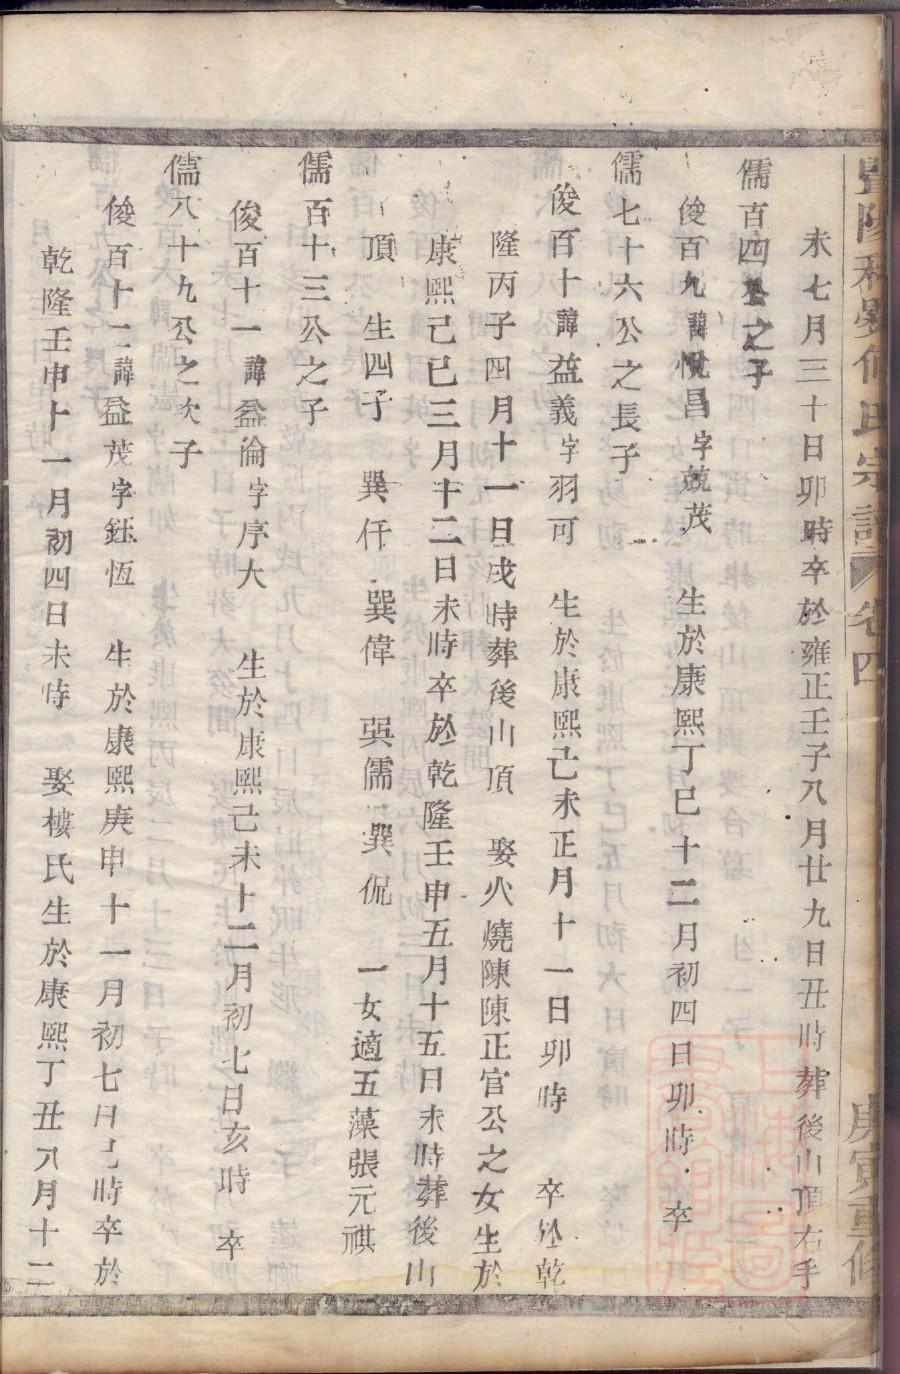 宗譜
卷四
庚寅重修
未七月三十日卯時卒於雍正壬子八月廿九日丑時葬後山頂右手
儒百四公之子
俊百九諱悅昌字競茂 生於康熙丁巳十二月初四日卯時 卒
儒七十六公之長子
俊百十諱益義字羽可 生於康熙己未正月十一日卯時 卒於乾
隆丙子四月十一日戌時葬後山頂 娶火燒陳陳正官公之女生於
康熙己巳三月十二日未時卒於乾隆壬申五月十五日未時葬後山
頂 生四子 巽仟 巽偉 巽儒 巽侃 一女適五藻張元祺
儒百十三公之子
俊百十一諱益倫字序大 生於康熙己未十二月初七日亥時 卒
儒八十九公之次子
俊百十二諱益茂字鈺恆 生於康熙庚申十一月初七日巳時卒於
乾隆壬申十一月初四日未時 娶樓氏生於康熙丁丑八月十二